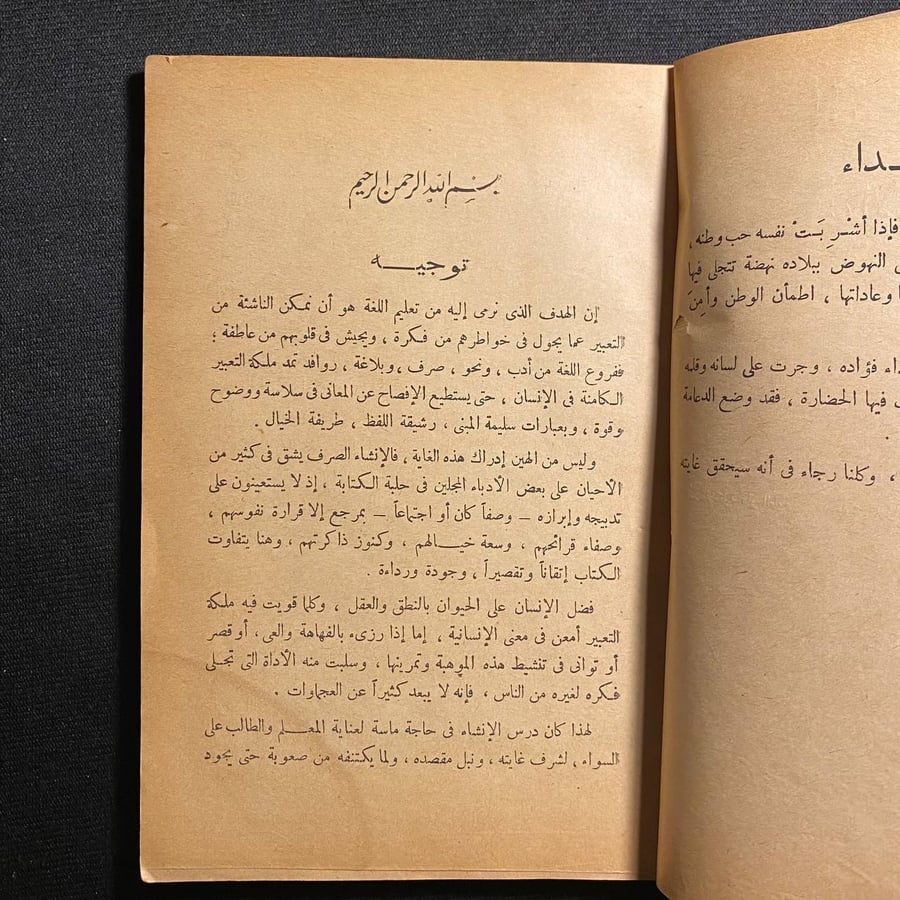 بسم الله الرحمن الرحيم
توجيـــه
إن الهدف الذى نرمى إليه من تعليم اللغة هو أن نمكن الناشئة من
التعبير عما يجول فى خواطرهم من فكرة ، ويجيش فى قلوبهم من عاطفة ؛
ففروع اللغة من أدب ، ونحو ، صرف ، وبلاغة ، روافد تمد ملكة التعبير
الكامنة فى الإنسان ، حتى يستطيع الإفصاح عن المعانى فى سلاسة ووضوح
وقوة ، وبعبارات سليمة المبنى ، رشيقة اللفظ ، طريفة الخيال .
وليس من الهين إدراك هذه الغاية ، فالإنشاء الصرف يشق فى كثير من
الأحيان على بعض الأدباء المجلين فى حلبة الكتابة ، إذ لا يستعينون على
تدبيجه وإبرازه – وصفاً كان أو اجتماعاً – بمرجع إلا قرارة نفوسهم ،
وصفاء قرائحهم ، وسعة خيـالهم ، وكنوز ذاكرتهم ، وهنا يتفاوت
الكتاب إتقاناً وتقصيراً ، وجودة ورداءة .
فضل الإنسان على الحيوان بالنطق والعقل ، وكلما قويت فيه ملكة
التعبير أمعن فى معنى الإنسانية ، إما إذا رزىء بالفهاهة والعى ، أو قصر
أو توانى فى تنشيط هذه الموهبة وتمرينها ، وسلبت منه الأداة التى تجلى
فكره لغيره من الناس ، فإنه لا يبعد كثيراً عن العجماوات .
لهذا كان درس الإنشاء فى حاجة ماسة لعناية المعـلم والطالب على
السواء ، لشرف غايته ، ونبل مقصده ، ولما يكتنفه من صعوبة حتى يجود
ـداء
فإذا أشْرِبَتْ نفسه حب وطنه ،
النهوض ببلاده نهضة تتجلى فيها
وعاداتها ، اطمأن الوطن وأمِنَ
فؤاده ، وجرت على لسانه وقلمه
فيها الحضارة ، فقد وضع الدعامة
.
، وكلنا رجاء فى أنه سيحقق غايته